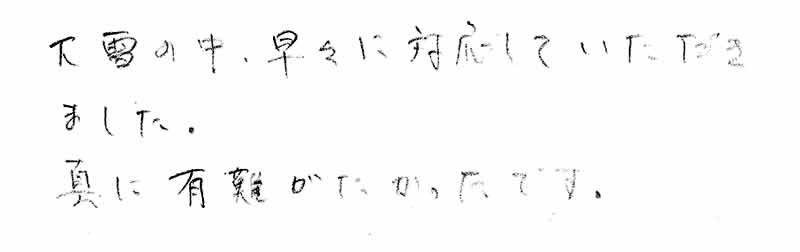 大雪の中、早々に対応していただき
ました。
真に有難がたかったです。